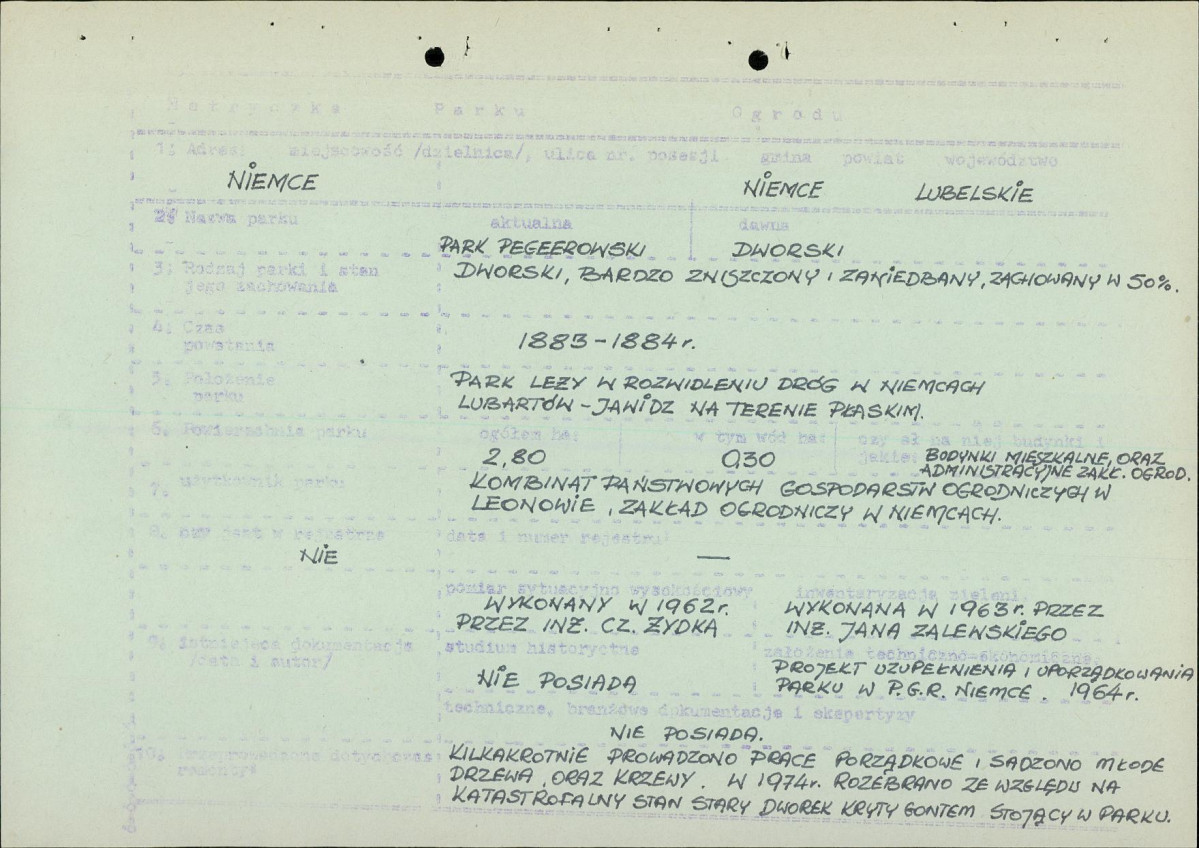 Metryczka Parku Ogrodu
1. Adres: miejscowość /dzielnica/, ulica nr. posesji gmina powiat województwo
NIEMCE NIEMCE LUBELSKIE
2. Nazwa parku aktualna dawna
PARK PEGEEROWSKI DWORSKI
3. Rodzaj parku i stan DWORSKI, BARDZO ZNISZCZONY I ZANIEDBANY, ZACHOWANY W 50%.
jego zachowania
4. Czas
powstania 1883-1884 r.
5. Położenie PARK LEŻY W ROZWIDLENIU DRÓG W NIEMCACH
parku LUBARTÓW - JAWIDZ NA TERENIE PŁASKIM.
6. Powierzchnia parku ogółem ha: w tym wód ha: czy są na niej budynki i
2,80 0,30 jakie: BUDYNKI MIESZKALNE, ORAZ
ADMINISTRACYJNE ZAKŁ. OGROD.
7. użytkownik parku KOMBINAT PAŃSTWOWYCH GOSPODARSTW OGRODNICZYCH W
LEONOWIE, ZAKŁAD OGRODNICZY W NIEMCACH.
8. czy jest w rejestrze data i numer rejestru
NIE —
pomiar sytuacyjno wysokościowy inwentaryzacja zieleni
WYKONANY W 1962 r. WYKONANA W 1963 r. PRZEZ
PRZEZ INŻ. CZ. ŻYDKA INŻ. JANA ZALEWSKIEGO
9. istniejąca dokumentacja studium historyczne założenia techniczno-ekonomiczne
/data i autor/ NIE POSIADA PROJEKT UZUPEŁNIENIA I UPORZĄDKOWANIA
PARKU W P.G.R. NIEMCE. 1964 r.
techniczne, branżowe dokumentacje i ekspertyzy
NIE POSIADA.
10. Przeprowadzone dotychczas KILKAKROTNIE PROWADZONO PRACE PORZĄDKOWE I SADZONO MŁODE
remonty DRZEWA, ORAZ KRZEWY. W 1974 r. ROZEBRANO ZE WZGLĘDU NA
KATASTROFALNY STAN STARY DWOREK KRYTY GONTEM STOJĄCY W PARKU.